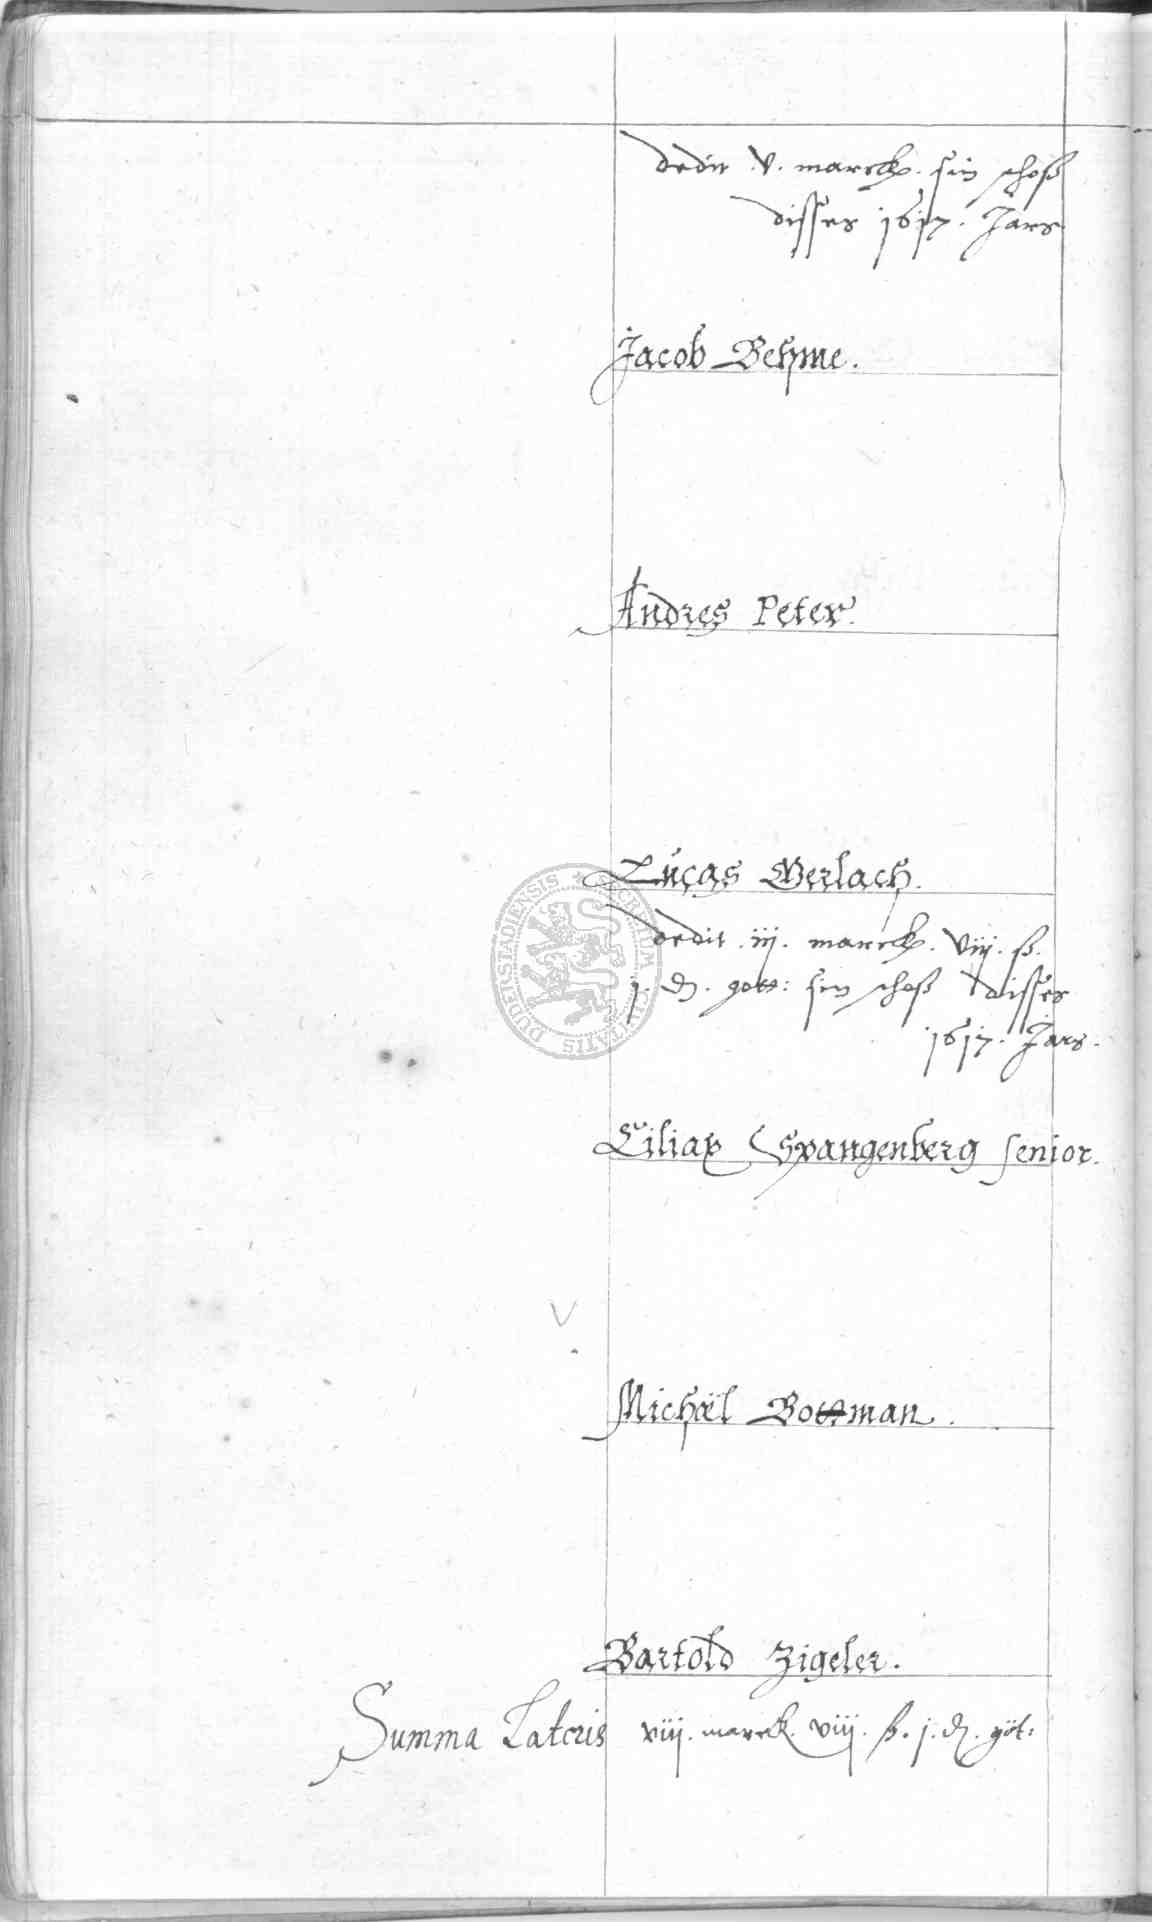 dedit .v. marck. sin schoß
disses 1617. Jars
Jacob Behme.
Andres Peter.
Lucas Gerlach.
dedit .iij. marck. viij. ß.
j. ₰. gott: sin schoß disses
1617. Jars.
Ciliax Spangenberg senior.
Michæl Bottman.
Bartold Zigeler.
Summa Lateris viij. marck. viij. ß. j. ₰. göt:
SECRETUM CIVITATIS DUDERSTADIENSIS